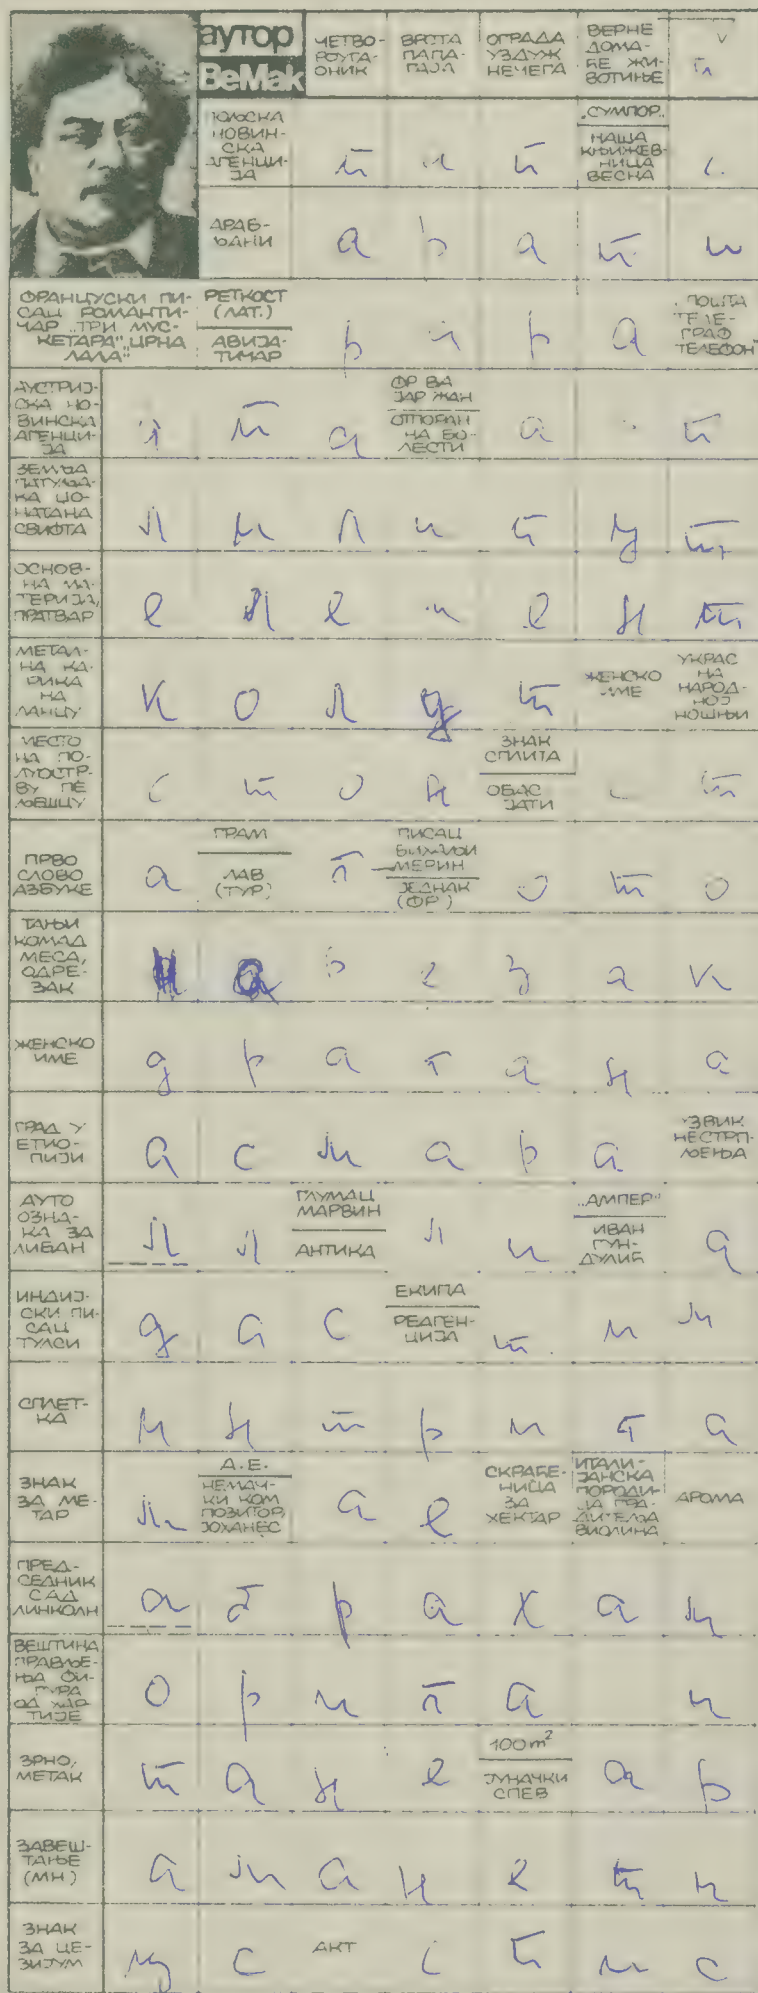 аутор
BeMak
ЧЕТВО-
РОУГА-
ОНИК
ВРСТА
ПАПА-
ГАЈА
ОГРАДА
УЗДУЖ
НЕЧЕГА
ВЕРНЕ
ДОМА-
ЋЕ ЖИ-
ВОТИЊЕ
ПОЉСКА
НОВИН-
СКА
АГЕНЦИ-
ЈА
п а п
„СУМПОР„
НАША
КЊИЖЕВ-
НИЦА
ВЕСНА
АРАБ-
ЉАНИ
а р а п и
ФРАНЦУСКИ ПИ-
САЦ РОМАНТИ-
ЧАР „ТРИ МУС-
КЕТАРА" „ЦРНА
ЛАЛА"
РЕТКОСТ
(ЛАТ.)
АВИЈА-
ТИЧАР
р а р а
ПОШТА
ТЕЛЕ-
ГРАФ
ТЕЛЕФОН
АУСТРИЈ-
СКА НО-
ВИНСКА
АГЕНЦИ-
ЈА
а п а
ОТПОРАН
НА БО-
ЛЕСТИ
ЗЕМЉА
ПАТУЉА-
КА ЏО-
НАТАНА
СВИФТА
л и л и п у т
ОСНОВ-
НА МА-
ТЕРИЈА,
ПРАТВАР
е л е м е н т
МЕТАЛ-
НА КА-
РИКА
НА
ЛАНЦУ
к о л у т
ЖЕНСКО
ИМЕ
УКРАС
НА
НАРОД-
НОЈ
НОШЊИ
МЕСТО
НА ПО-
ЛУОСТР-
ВУ ПЕ
ЉЕШЦУ
с т о н
ЗНАК
СПЛИТА
ОБАС
ЈАТИ
ПРВО
СЛОВО
АЗБУКЕ
а
ГРАМ
ЛАВ
(ТУР)
г
ПИСАЦ
БИХАЛЈИ
МЕРИН
ЈЕДНАК
(ФР)
о т о
ТАЊИ
КОМАД
МЕСА,
ОДРЕ-
ЗАК
н а р е з а к
ЖЕНСКО
ИМЕ
д р а г а н а
ГРАД У
ЕТИО-
ПИЈИ
а с м а р а
УЗВИК
НЕСТРП-
ЉЕЊА
АУТО
ОЗНА-
КА ЗА
ЛИБАН
л л
ГЛУМАЦ
МАРВИН
АНТИКА
л и
„АМПЕР"
ИВАН
ГУН-
ДУЛИЋ
а
ИНДИЈ-
СКИ ПИ-
САЦ
ТУЛСИ
д а с
ЕКИПА
РЕАГЕН-
ЦИЈА
т и м
СПЛЕТ-
КА
и н т р и г а
ЗНАК
ЗА МЕ-
ТАР
м
А.Е.
НЕМАЧ-
КИ КОМ
ПОЗИТОР,
ЈОХАНЕС
а е
СКРАЋЕ-
НИЦА
ЗА
ХЕКТАР
ИТАЛИ-
ЈАНСКА
ПОРОДИ-
ЦА ГРА-
ДИТЕЉА
ВИОЛИНА
АРОМА
ПРЕД-
СЕДНИК
САД
ЛИНКОЛН
а б р а х а м
ВЕШТИНА
ПРАВЉЕ-
ЊА ФИ-
ГУРА
ОД ХАР
ТИЈЕ
о р и г а м и
ЗРНО,
МЕТАК
т а н е
100 m²
ЈУНАЧКИ
СПЕВ
а р
ЗАВЕШ-
ТАЊЕ
(МН)
а м а н е т и
ЗНАК
ЗА ЦЕ-
ЗИЈУМ
ц с
АКТ
с п и с